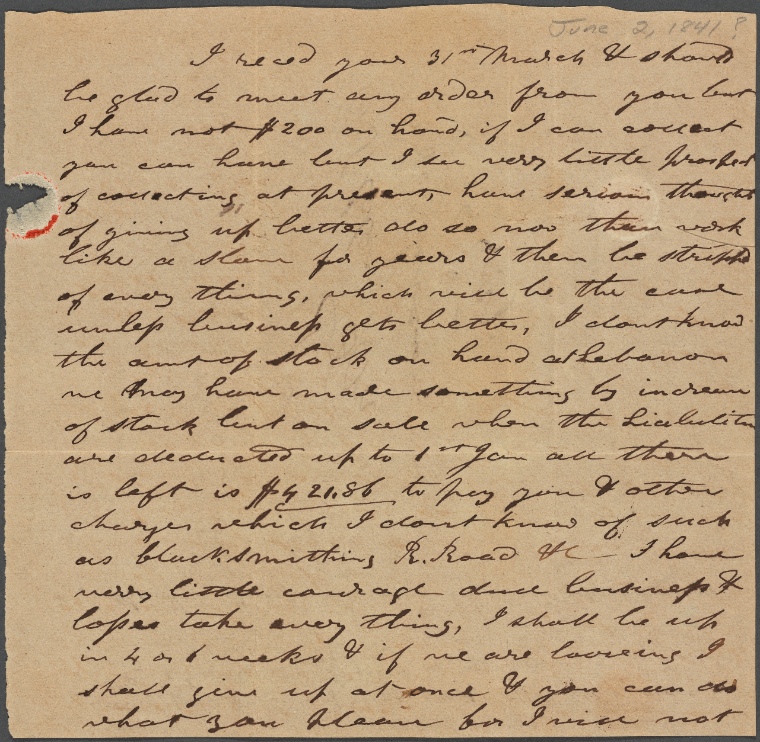 June 2, 1841?
I reced your 31st March & should
be glad to meet any order from you but
I have not $200 on hand, if I can collect
you can have but I see very little prospect
of collecting at present, have serious thoughts
of giving up better do so now than work
like a slave for years & then be stripd
of every thing, which will be the case
unless business gets better, I dont know
the amt of stock on hand at Lebanon
we may have made something by increase
of stock but on sale when the Liabilities
are deducted up to 1st Jan all there
is left is $421.86 to pay you & other
charges which I dont know of such
as blacksmithing R. Road &c I have
very little courage dull business &
losses take every thing, I shall be up
in 4 or 6 weeks & if we are looseing I
shall give up at once & you can do
what you please for I will not